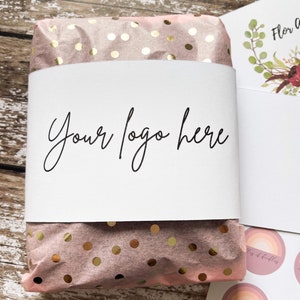 Your logo here
Flor